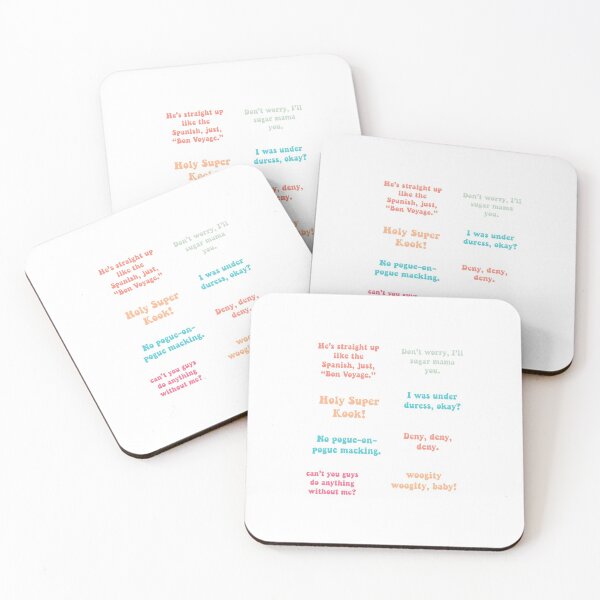 He's straight up
like the
Spanish, just,
"Bon Voyage."
Don't worry, I'll
sugar mama
you.
Holy Super
I was under
duress, okay?
deny,
He's straight up
like the
Spanish, just,
"Bon Voyage."
Don't worry, I'll
sugar mama
you.
Holy Super
Kook!
I was under
duress, okay?
No pogue-on-
pogue macking.
Deny, deny,
deny.
can't you guys
He's straight up
like the
Spanish, just,
"Bon Voyage."
Don't worry, I'll
sugar mama
you.
Holy Super
Kook!
I was under
duress, okay?
No pogue-on-
pogue macking.
Deny, deny,
deny.
can't you guys
do anything
without me?
He's straight up
like the
Spanish, just,
"Bon Voyage."
Don't worry, I'll
sugar mama
you.
Holy Super
Kook!
I was under
duress, okay?
No pogue-on-
pogue macking.
Deny, deny,
deny.
can't you guys
do anything
without me?
woogity
woogity, baby!